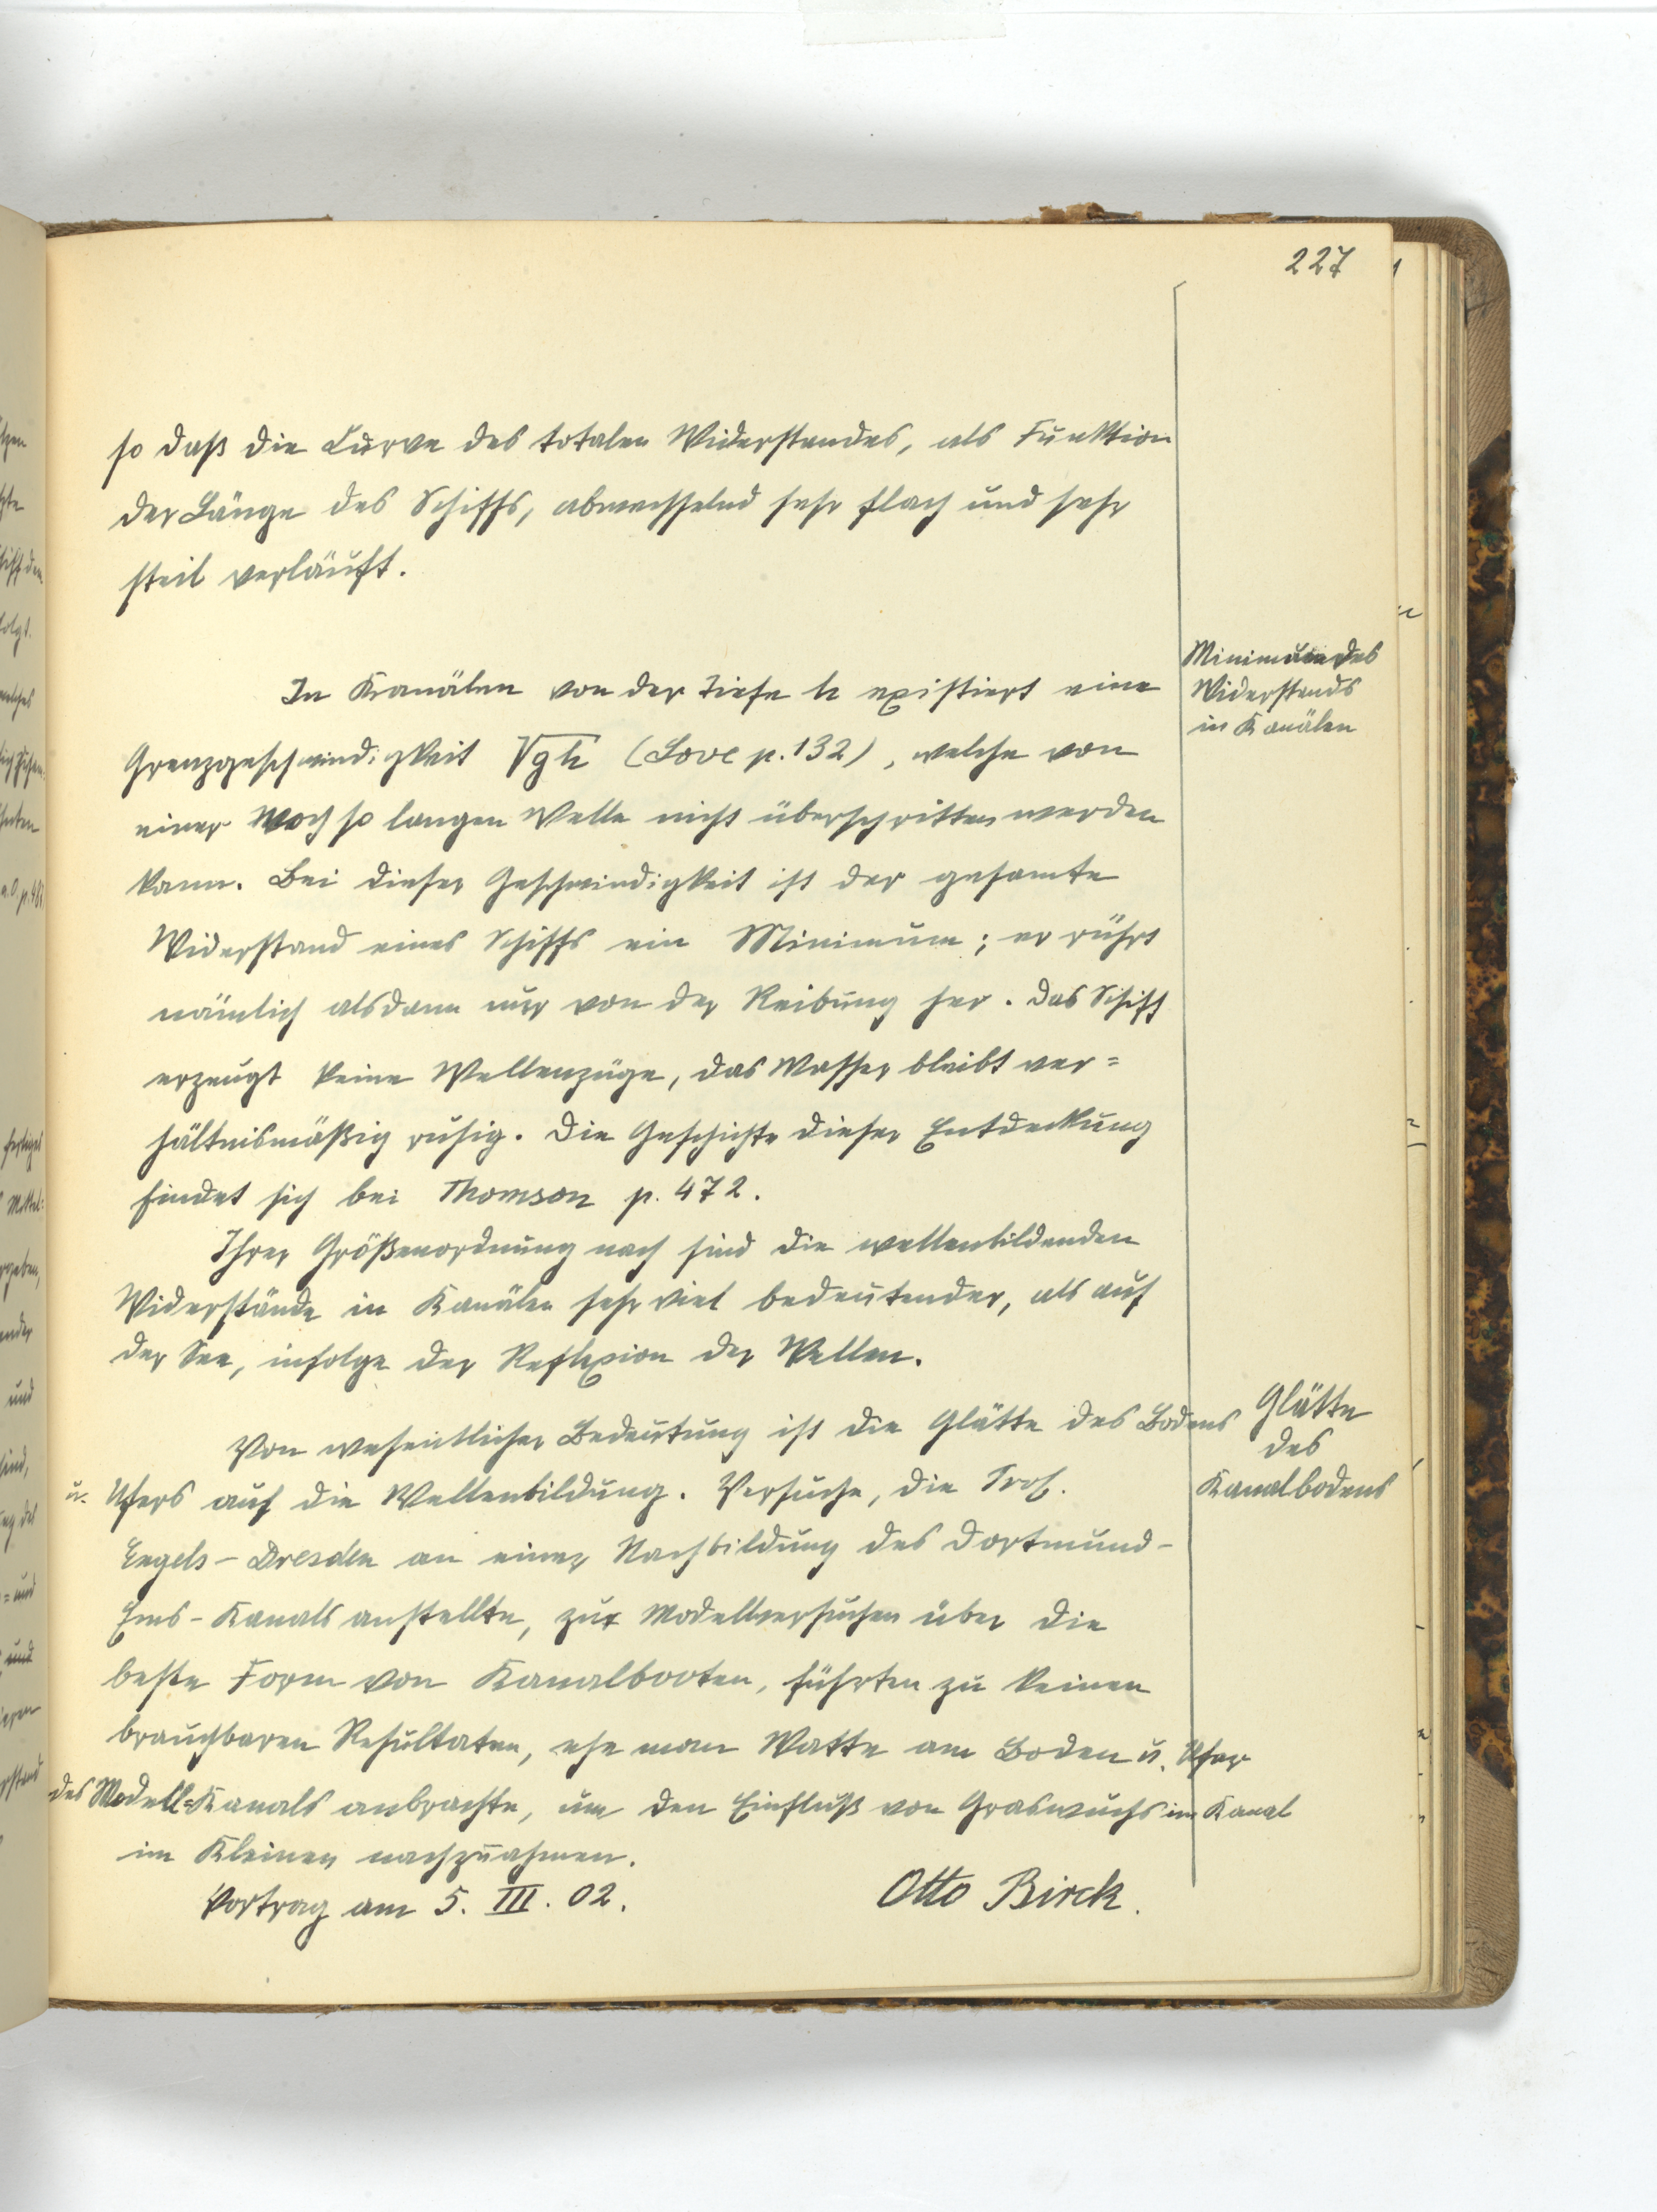 227
so daß die Curve des totalen Widerstandes, als Funktion
der Länge des Schiffs, abwechselnd sehr flach und sehr
steil verläuft.
Minimum des
Widerstands
in Kanälen
In Kanälen von der Tiefe h existiert eine
Grenzgeschwindigkeit √gh (Love p. 132), welche von
einer noch so langen Welle nicht überschritten werden
kann. Bei dieser Geschwindigkeit ist der gesamte
Widerstand eines Schiffs ein Minimum; er rührt
nämlich alsdann nur von der Reibung her. Das Schiff
erzeugt keine Wellenzüge, das Wasser bleibt ver=
hältnismäßig ruhig. Die Geschichte dieser Entdeckung
findet sich bei Thomson p. 472.
Ihrer Größenordnung nach sind die wellenbildenden
Widerstände in Kanälen sehr viel bedeutender, als auf
der See, infolge der Reflexion der Wellen.
Glätte
des
Kanalbodens
Von wesentlicher Bedeutung ist die Glätte des Bodens
u. Ufers auf die Wellenbildung. Versuche, die Prof.
Engels-Dresden an einer Nachbildung des Dortmund-
Ems-Kanals anstellte, zur Modellversuchen über die
beste Form von Kanalbooten, führten zu keinen
brauchbaren Resultaten, ehe man Watte am Boden u. Ufer
des Modell=Kanals anbrachte, um den Einfluß von Graswuchs im Kanal
im Kleinen nachzuahmen.
Vortrag am 5. III. 02.
Otto Birck.